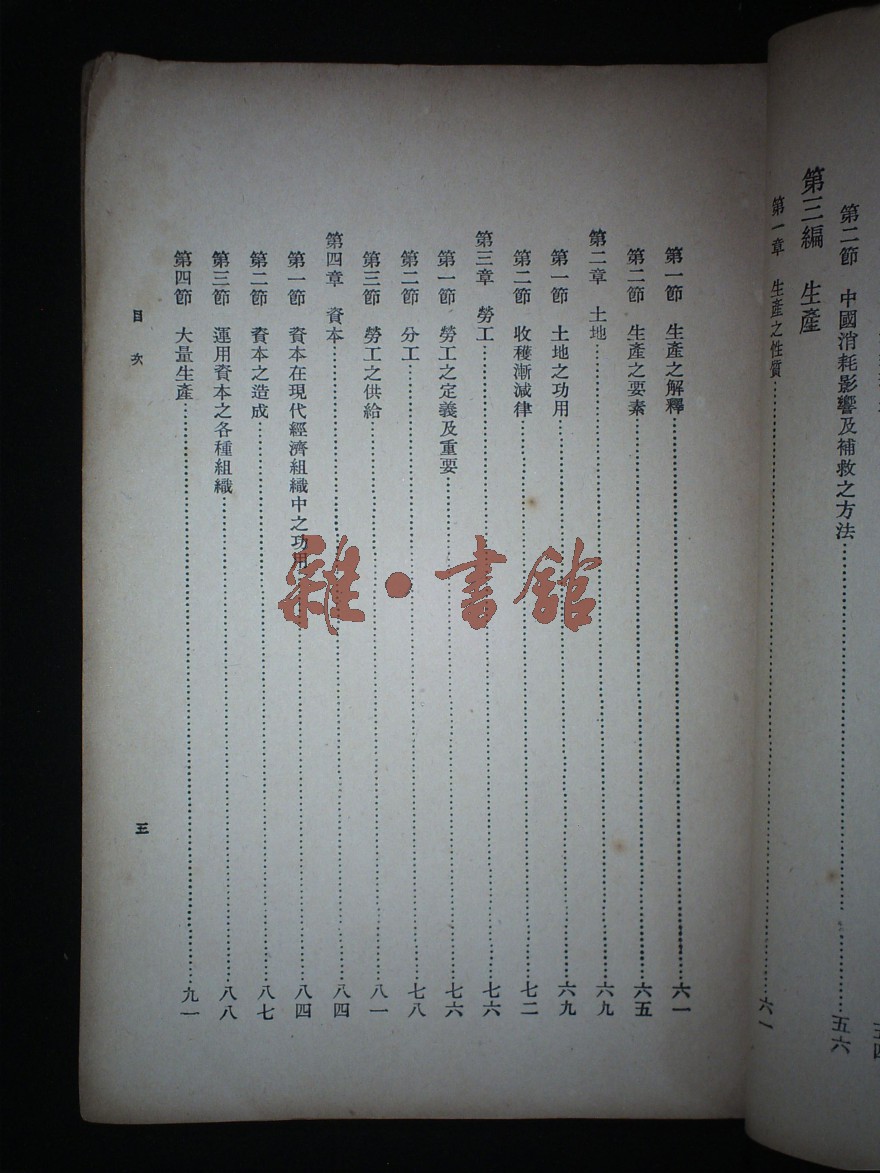 第二節　中國消耗影響及補救之方法……五六
第三編　生產
第一章　生產之性質……六一
第一節　生產之解釋……六一
第二節　生產之要素……六五
第二章　土地……六九
第一節　土地之功用……六九
第二節　收穫漸減律……七二
第三章　勞工……七六
第一節　勞工之定義及重要……七六
第二節　分工……七八
第三節　勞工之供給……八一
第四章　資本……八四
第一節　資本在現代經濟組織中之功用……八四
第二節　資本之造成……八七
第三節　運用資本之各種組織……八八
第四節　大量生產……九一
目次
三
雜·書館